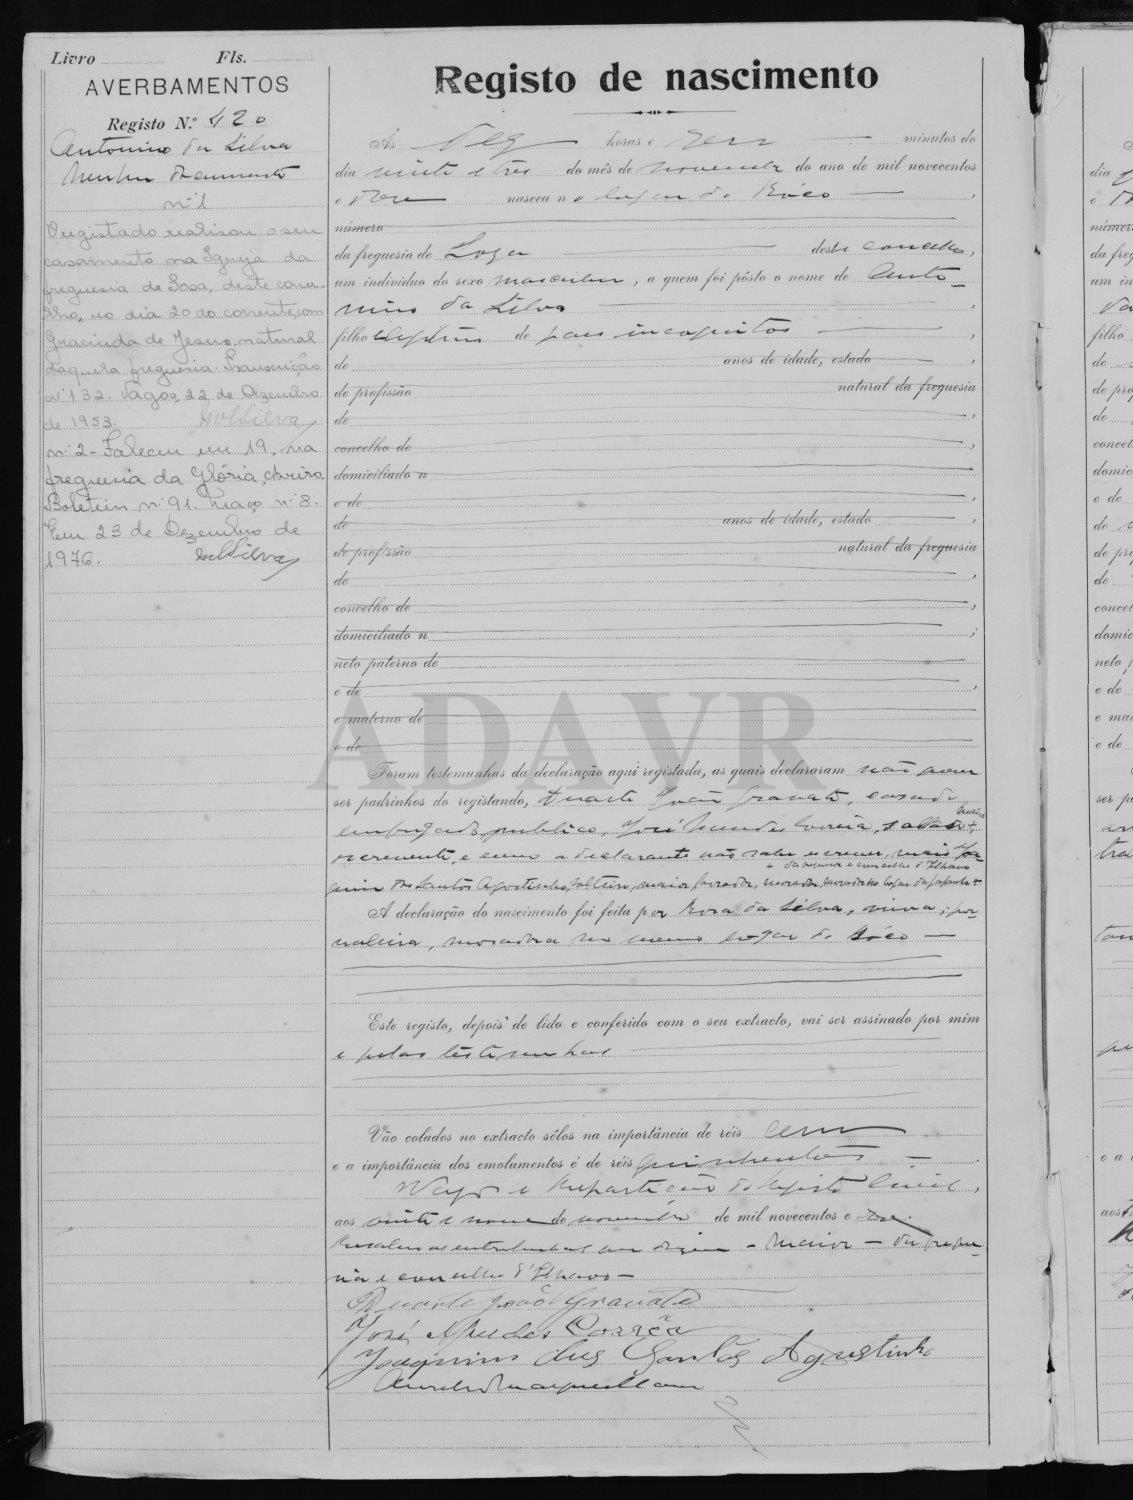 Livro Fls.
AVERBAMENTOS
Registo N.º 420
Antonino da Silva
Nenhum documento
nº 1
O registado realisou o seu
casamento na Igreja da
freguesia de Sosa, deste conce-
lho, no dia 20 do corrente, com
Gracinda de Jesus, natural
daquela freguesia. Transcrição
nº 132. Vagos, 22 de Dezembro
de 1953.
nº 2 - Faleceu em 19, na
freguesia da Glória, Aveiro.
Boletim nº 91. Maço nº 8.
Em 23 de Dezembro de
1976.
Registo de nascimento
Ás dez horas e zero minutos do
dia vinte e três do mês de novembro do ano de mil novecentos
e doze nasceu no lugar de Bóco,
número
da freguesia de Soza deste concelho,
um indivíduo do sexo masculino, a quem foi pôsto o nome de Anto-
nino da Silva,
filho ilegitimo de pais incognitos,
de anos de idade, estado,
de profissão natural da freguesia
de,
concelho de,
domiciliado n
e de,
de anos de idade, estado,
de profissão natural da freguesia
de,
concelho de,
domiciliado n;
neto paterno de
e de,
e materno de
e de
ADAVR
Foram testemunhas da declaração aqui registada, as quais declararam não querer
ser padrinhos do registando, Duarte João Gravato, casado
empregado publico, José Mendes Correia, solteiro, maior
escrevente, e como a declarante não sabe escrever, mais Joa-
+ da freguesia e concelho d'Ilhavo
quim dos Santos Agostinho, solteiro, maior, lavrador, morador no lugar da +
A declaração do nascimento foi feita por Rosa da Silva, viuva, jor-
naleira, moradora no mesmo lugar de Bóco
Este registo, depois de lido e conferido com o seu extracto, vai ser assinado por mim
e pelas testemunhas
Vão colados no extracto sêlos na importância de réis cem
e a importância dos emolumentos é de réis quinhentos
Vagos e Repartição do Registo Civil,
aos vinte e nove de novembro de mil novecentos e doze.
Resalvo as entrelinhas que dizem - maior - da fregue-
sia e concelho d'Ilhavo -
Duarte João Gravato
José Mendes Corrêa
Joaquim dos Santos Agostinho
Livro
dia
e
número
da freg
um in
filho
de
de pro
de
concel
domic
e de
de
de pro
de
concel
domic
neto p
e de
e mat
e de
ser pa
e a i
aos